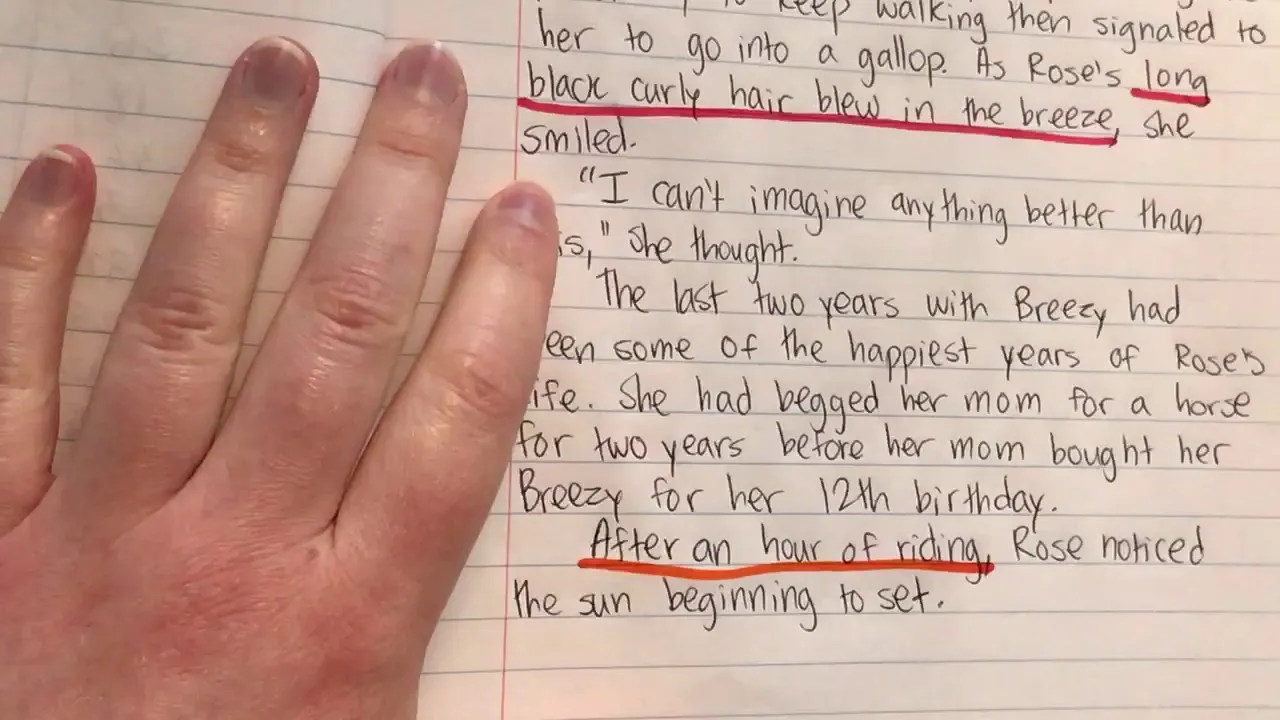 to keep walking then signaled to
her to go into a gallop. As Rose's long
black curly hair blew in the breeze, she
smiled.
"I can't imagine anything better than
is," she thought.
The last two years with Breezy had
een some of the happiest years of Rose's
ife. She had begged her mom for a horse
for two years before her mom bought her
Breezy for her 12th birthday.
After an hour of riding, Rose noticed
the sun beginning to set.